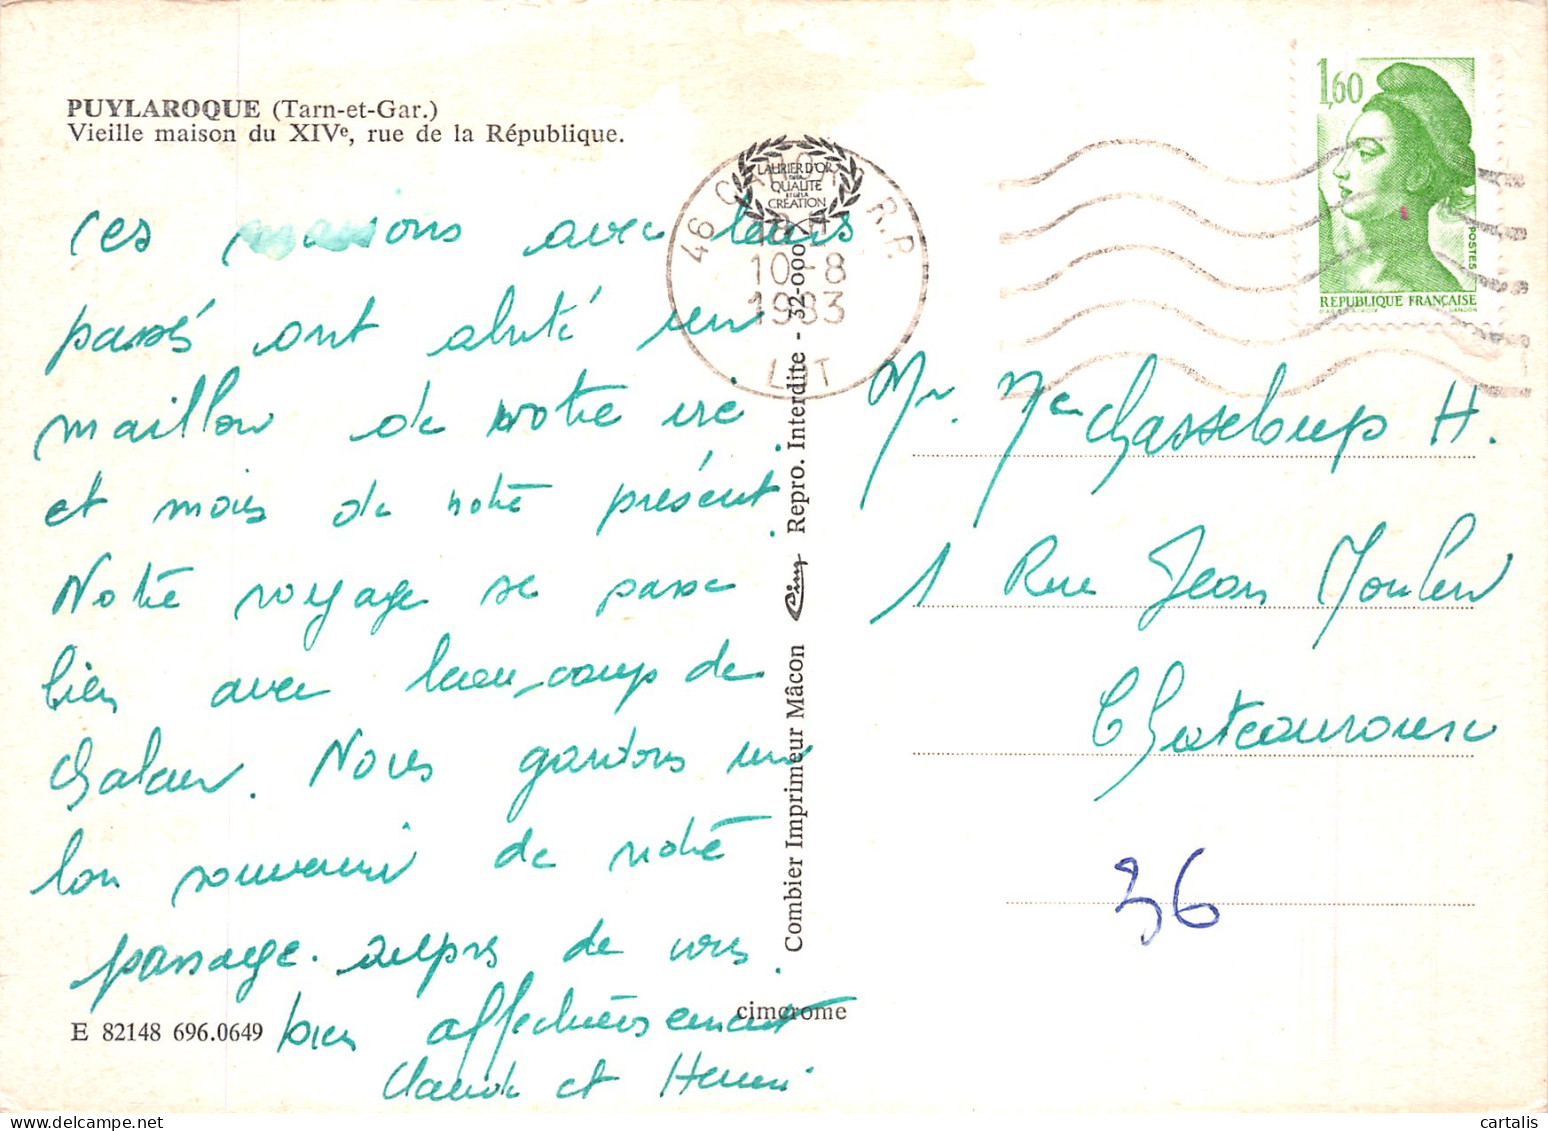 PUYLAROQUE (Tarn-et-Gar.)
Vieille maison du XIVe, rue de la République.
Ces maisons avec leurs
passés ont abrité un
maillon de notre vie
et mois de notre présent.
Notre voyage se passe
bien avec beaucoup de
chaleur. Nous gardons un
bon souvenir de notre
passage auprès de vous.
bien affectueusement
Claude et Henri
E 82148 696.0649
cimcrome
Combier Imprimeur Mâcon Cim Repro. Interdite - 32-000
LAURIER D'OR
DE LA
QUALITE
ET DE LA
CREATION
46 R.P.
10-8
1983
LOT
1,60
POSTES
REPUBLIQUE FRANÇAISE
GANDON
Mr. Me Chasseloup H.
1 Rue Jean Moulin
Chateauroux
36
cartalis